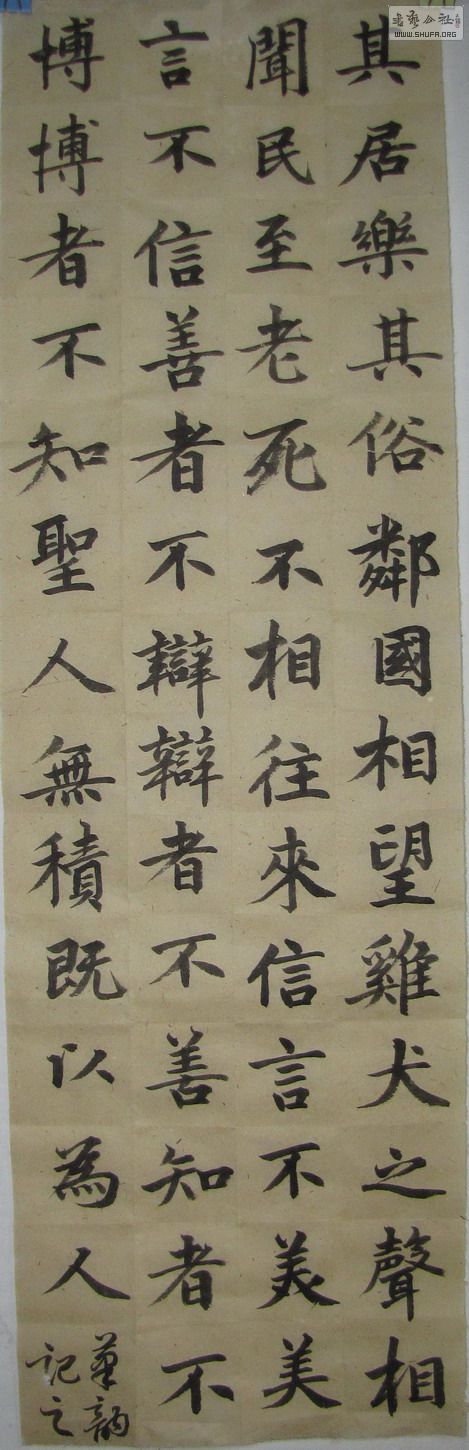 其居樂其俗鄰國相望雞犬之聲相
聞民至老死不相往來信言不美美
言不信善者不辯辯者不善知者不
博博者不知聖人無積既以為人
筆韻
記之
WWW.SHUFA.ORG